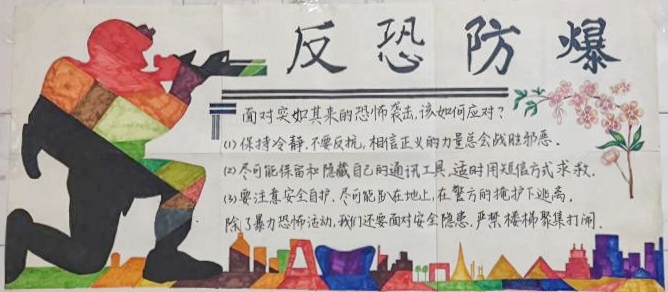 反恐防爆
面对突如其来的恐怖袭击,该如何应对?
(1)保持冷静,不要反抗,相信正义的力量总会战胜邪恶.
(2)尽可能保留和隐藏自己的通讯工具,适时用短信方式求救.
(3)要注意安全自护,尽可能趴在地上,在警方的掩护下逃离.
除了暴力恐怖活动,我们还要面对安全隐患,严禁楼梯聚集打闹.